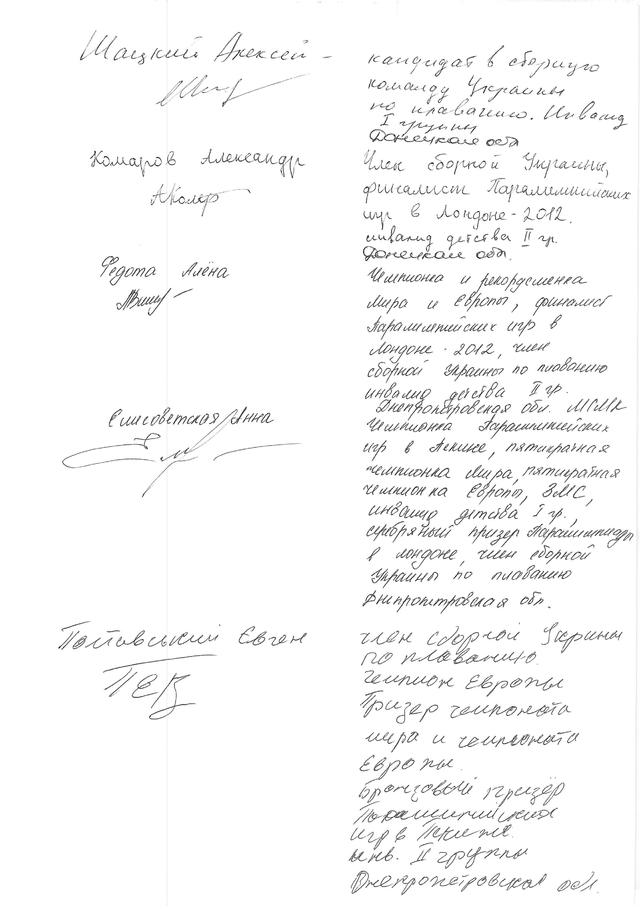 Шацкий Алексей –
кандидат в сборную
команду Украины
по плаванию. Инвалид
I группы
Донецкая обл
Комаров Александр
АКомар
Член сборной Украины,
финалист Паралимпийских
игр в Лондоне - 2012.
инвалид детства II гр.
Донецкая обл.
Федота Алёна
Чемпионка и рекордсменка
Мира и Европы, финалист
Паралимпийских игр в
Лондоне - 2012, член
сборной Украины по плаванию
инвалид детства II гр.
Днепропетровская обл. МСМК
Елисоветская Анна
Чемпионка Паралимпийских
игр в Пекине, пятикратная
чемпионка Мира, пятикратная
чемпионка Европы, ЗМС,
инвалид детства I гр.,
серебряный призер Паралимпиады
в Лондоне, член сборной
Украины по плаванию
Днипропетровская обл.
Полтавський Євген
ПЕВ
член сборной Украины
по плаванию.
Чемпион Европы
Призер чемпионата
мира и чемпионата
Европы.
Бронзовый призёр
Паралимпийских
игр в Пекине.
инв. II группы
Днепропетровская обл.